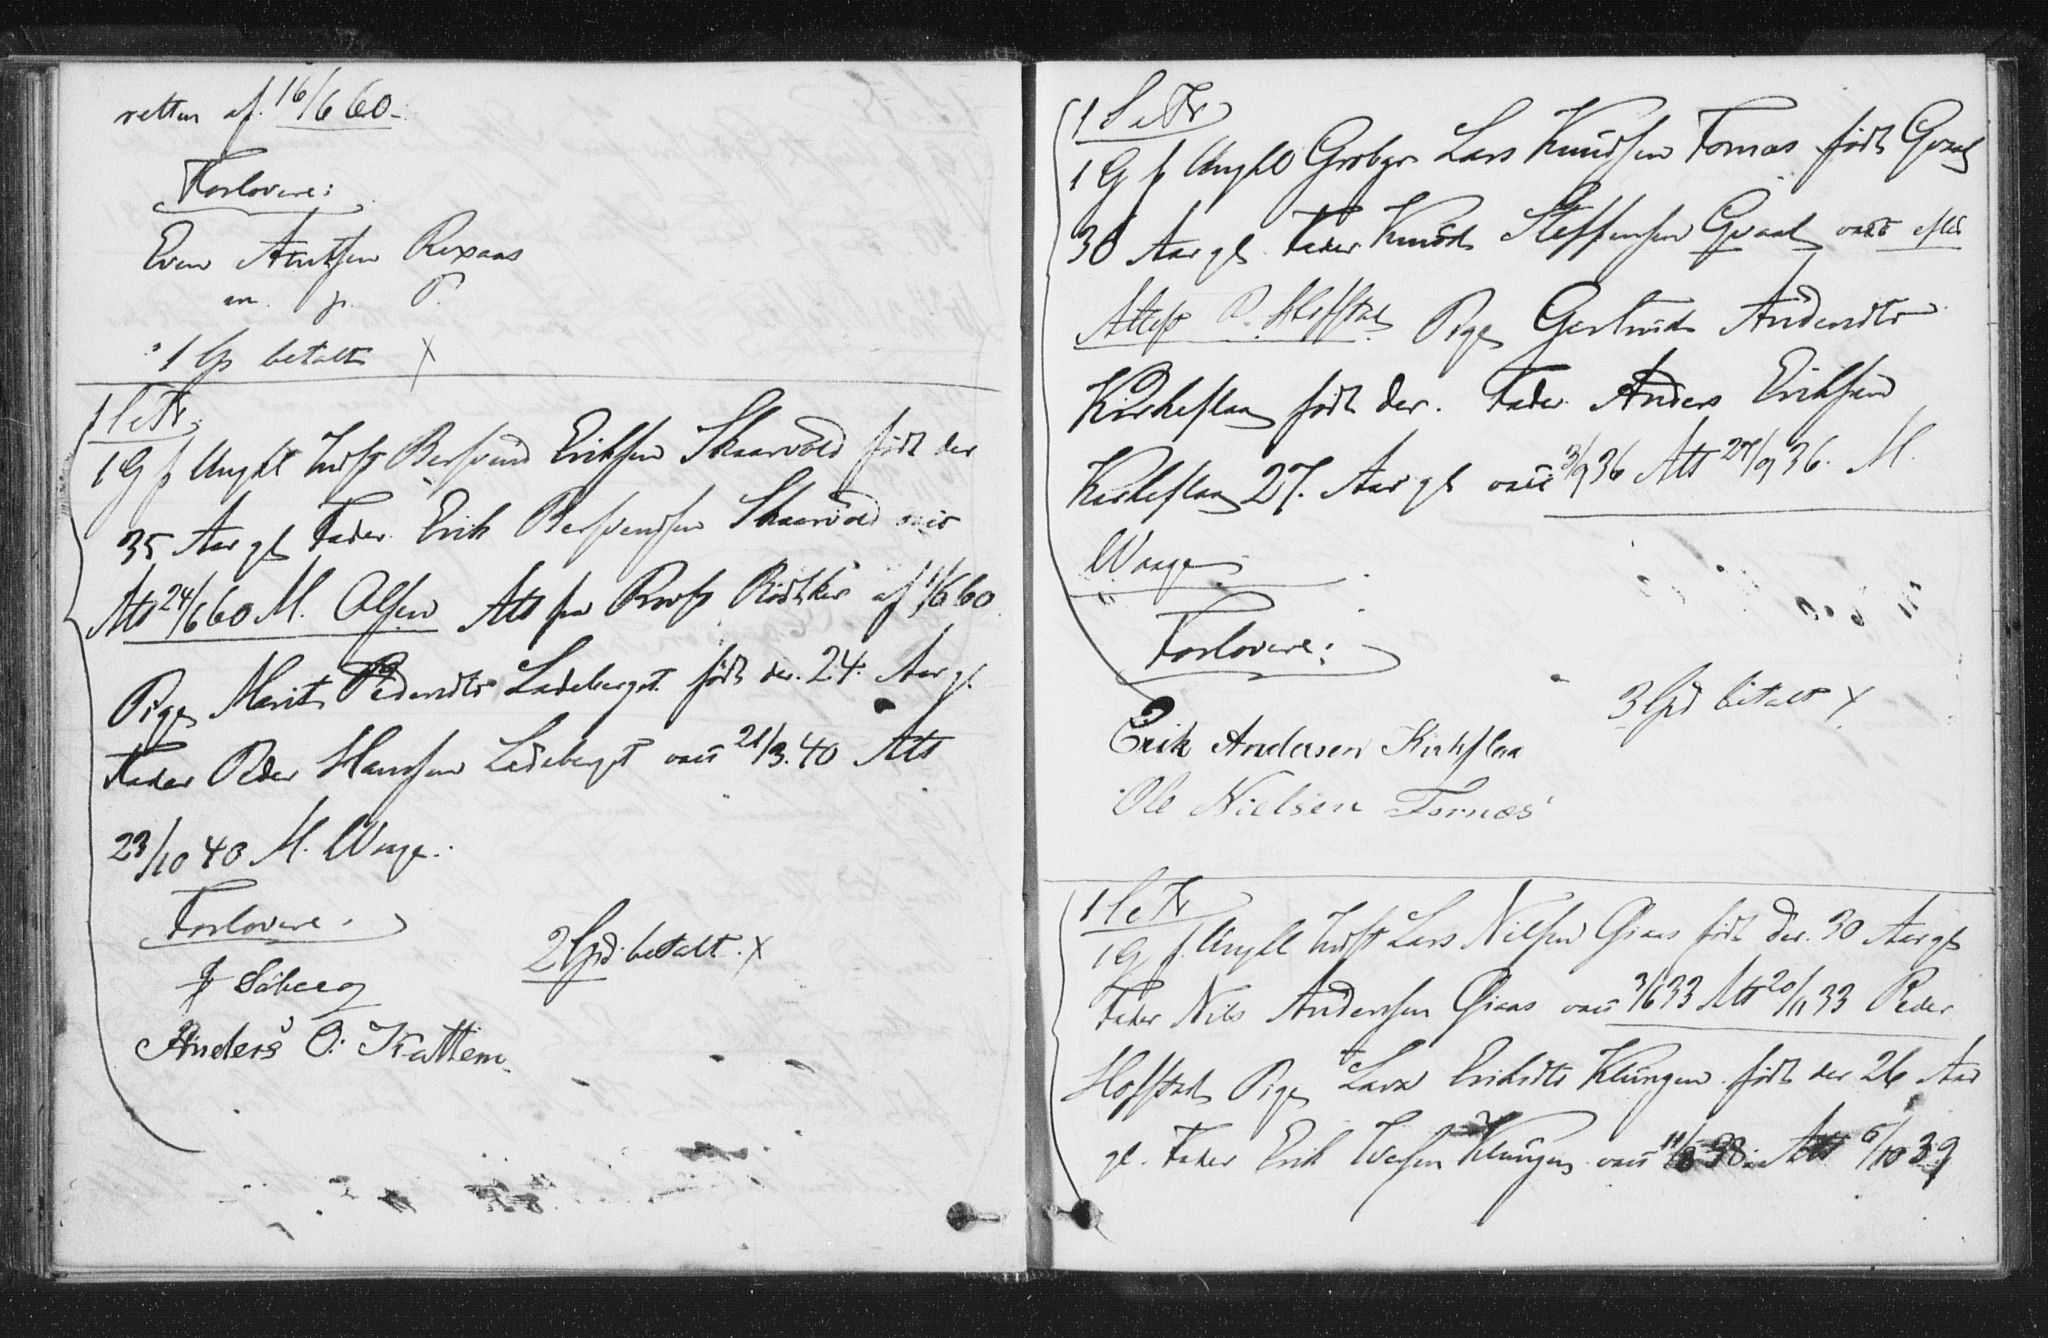 retten af 16/6 60.
Forlovere:
Even Arntsen Rexaas
m. p. P.
1 Gr betalt X
1 S e Tr.
1 G f Ungkl Indst Bersvend Eriksen Skaarvold født der
35 Aar gl Fader Erik Bersvendsen Skaarvold
Att 24/6 60 M. Olsen Att fra Provst af 1/6 60
Pige Marit Pedersdtr Ladeberget født der. 24 Aar gl.
Fader Peder Hansen Ladeberget vacc 21/3. 40 Att
23/10 40 M. Waage.
Forlovere.
2 Gr betalt. X
Søberg
Anders O: Kattem.
1 S e Tr
1 G f Ungkl Grdbgr Lars Knudsen Fornæs født Gvaal
30 Aar gl. Fader Knud Steffensen Gvaal vacc efter
Attest P. Hoffstad Pige Gertrud Andersdtr
Kirkeflaa født der. Fader Anders Eriksen
Kirkeflaa 27. Aar gl vacc 3/9 36 Att 27/9 36. M.
Waage
Forlovere:
3 Gr betalt X
Erik Andersen Kirkflaa
Ole Nielsen Fornæs
1 S e Tr
1 G f. Ungkl Indst Lars Nilsen Graas født der. 30 Aar gl
Fader Nils Andersen Graas vacc 3/6 33 Att 20/11 33 Peder
Hoffstad Pige Eriksdtr Klungen født der 26 Aar
gl. Fader Erik Klungen vacc 38. Att 6/10 39